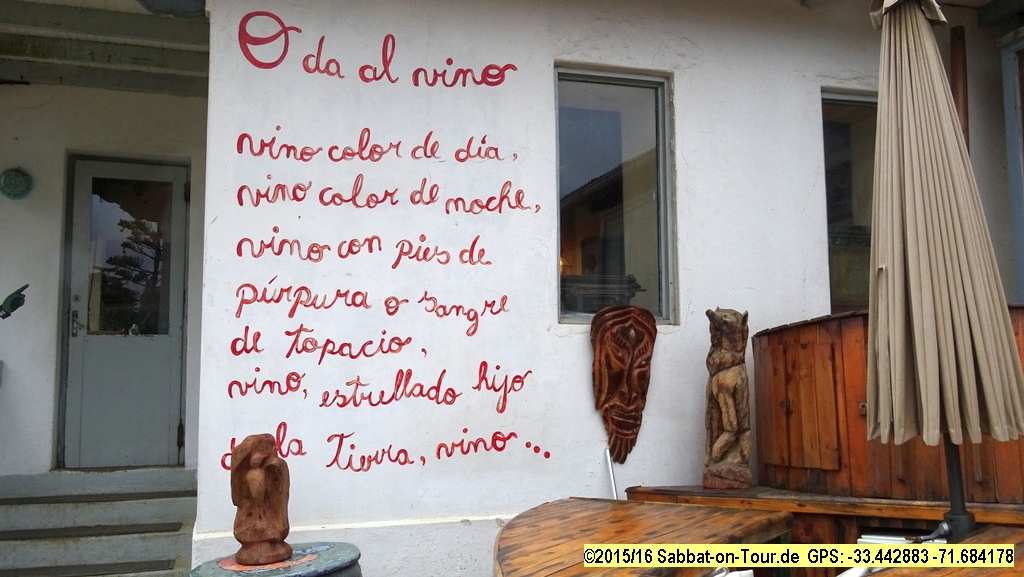 Oda al vino
vino color de día,
vino color de noche,
vino con pies de
púrpura o sangre
de topacio,
vino, estrellado hijo
de la Tierra, vino...
©2015/16 Sabbat-on-Tour.de GPS: -33.442883 -71.684178